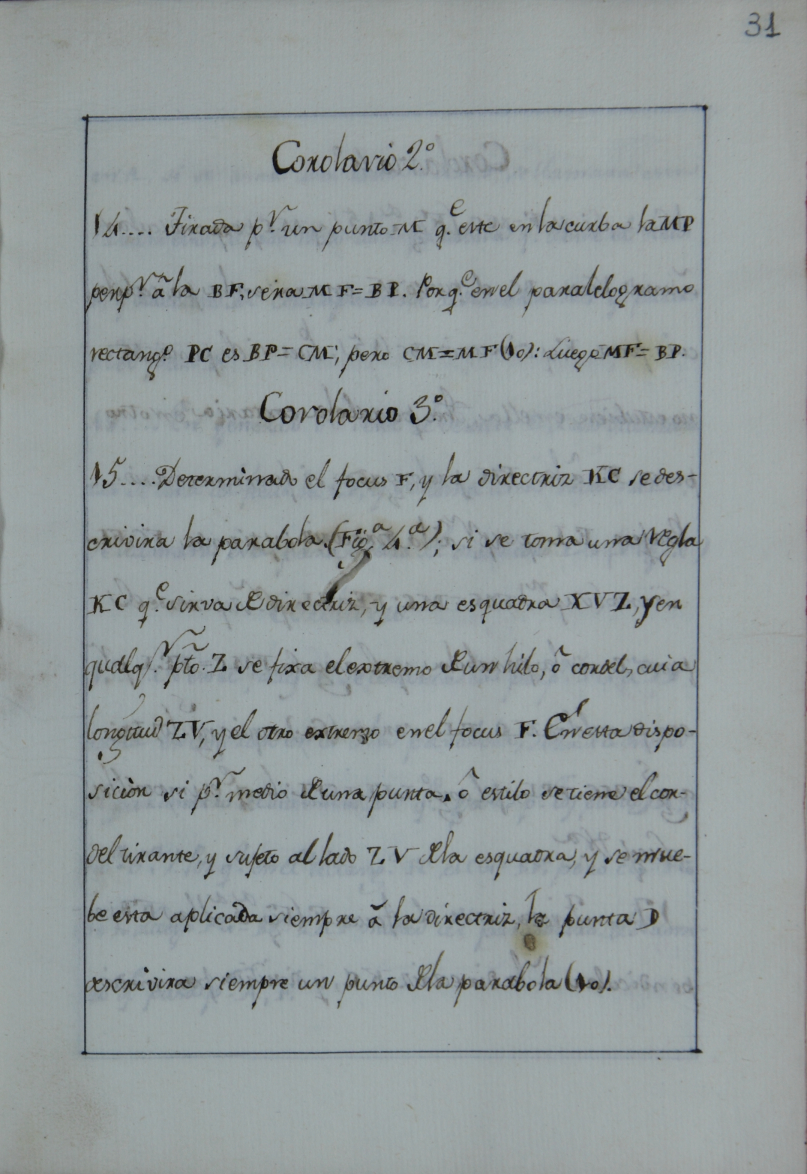 31
Corolario 2.º
14.... Tirada p.r un punto M q.e este en la curba la MP
perp.r â la BF, sera MF=BP. Porq.e en el paralelogramo
rectang.º PC es BP=CM; pero CM=MF (10): Luego MF=BP.
Corolario 3.º
15.... Determinado el focus F, y la directriz KC se des-
crivira la parabola (Fig.a 4.a); si se toma una Regla
KC q.e sirva de directriz, y una esquadra XVZ, y en
qualq.r pto. Z se fixa el extremo de un hilo, ô cordel, cuia
longitud ZV, y el otro extremo en el focus F. En esta dispo-
sicion si p.r medio de una punta, ô estilo se tiene el cor-
del tirante, y sujeto al lado ZV de la esquadra, y se mue-
be esta aplicada siempre â la directriz, la punta D
descrivira siempre un punto de la parabola (10).